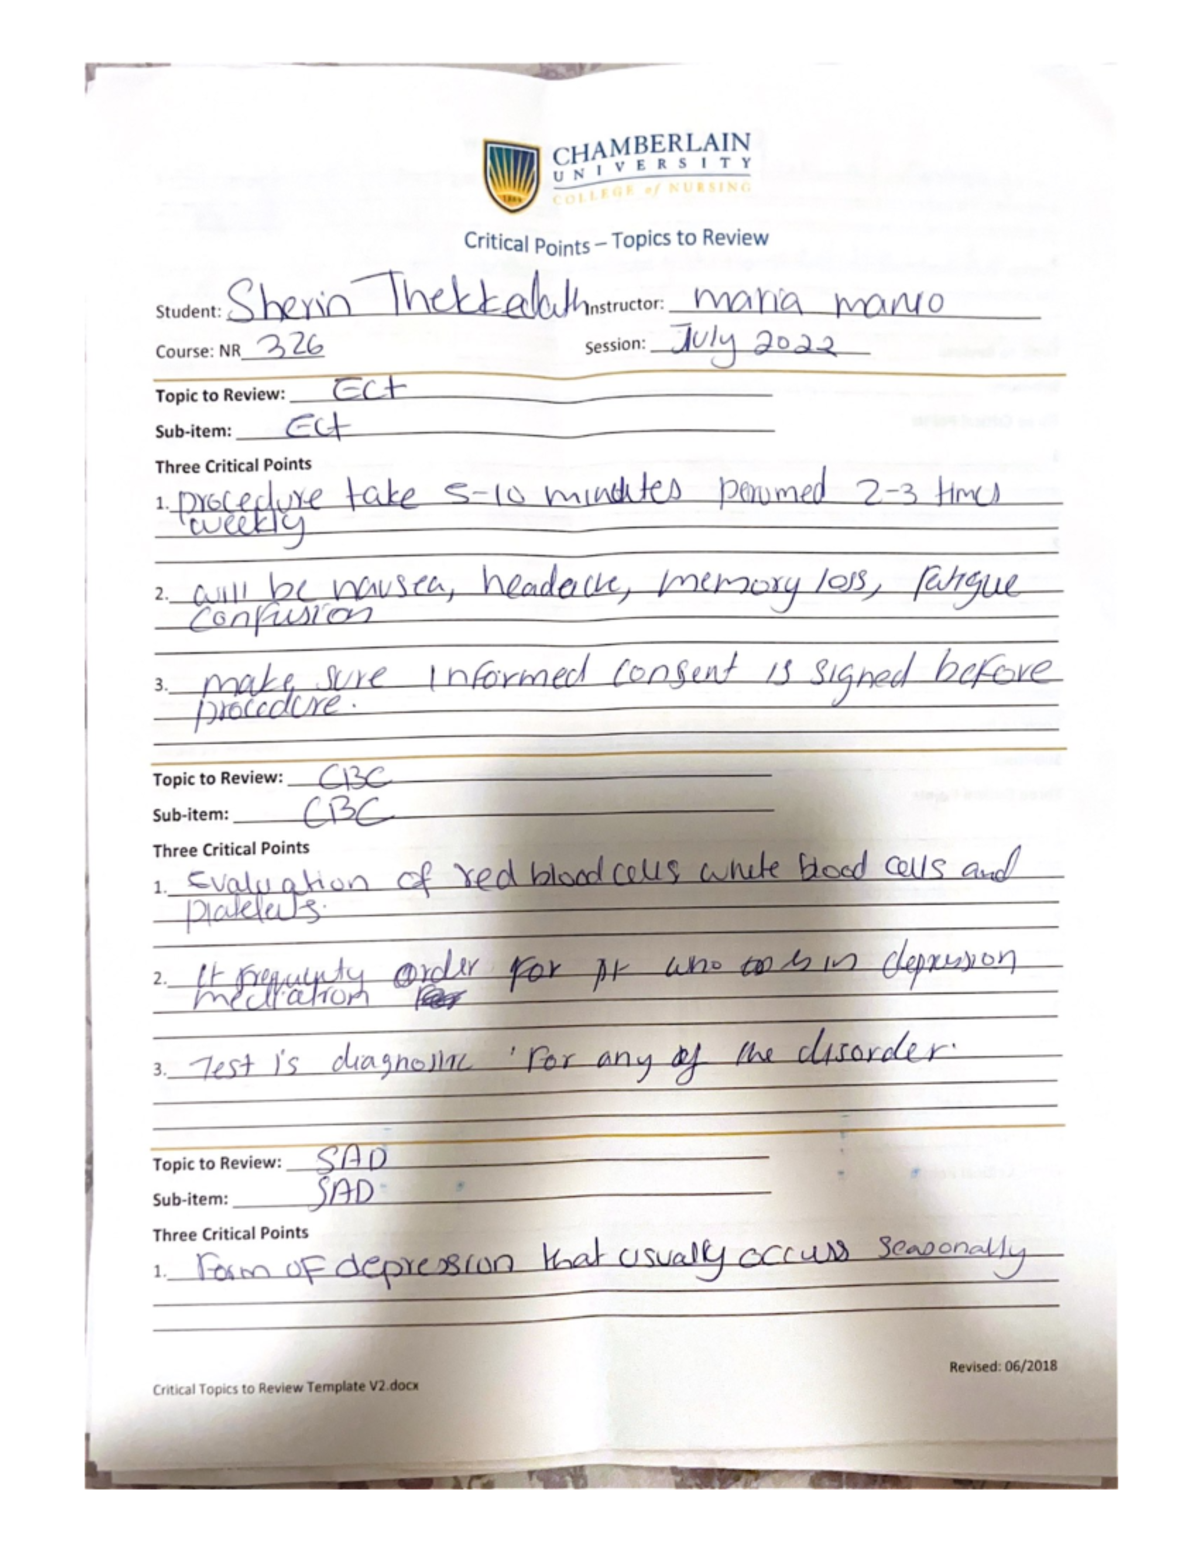 CHAMBERLAIN
UNIVERSITY
COLLEGE of NURSING
Critical Points – Topics to Review
Student: Sherin Thekkedath Instructor: maria manro
Course: NR 326 Session: July 2022
Topic to Review: ECt
Sub-item: ECt
Three Critical Points
1. procedure take 5-10 mindutes perumed 2-3 times
weekly
2. will be nausea, headache, memory loss, fatigue
confusion
3. make sure informed consent is signed before
procedure.
Topic to Review: CBC
Sub-item: CBC
Three Critical Points
1. Evaluation of red blood cells white blood cells and
platelets.
2. It order for pt who is in depression
3. Test is diagnostic for any of the disorder.
Topic to Review: SAD
Sub-item: SAD
Three Critical Points
1. Form of depression that usually occurs seasonally
Revised: 06/2018
Critical Topics to Review Template V2.docx